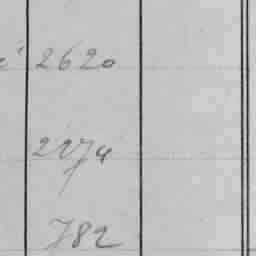 2620
2274
782